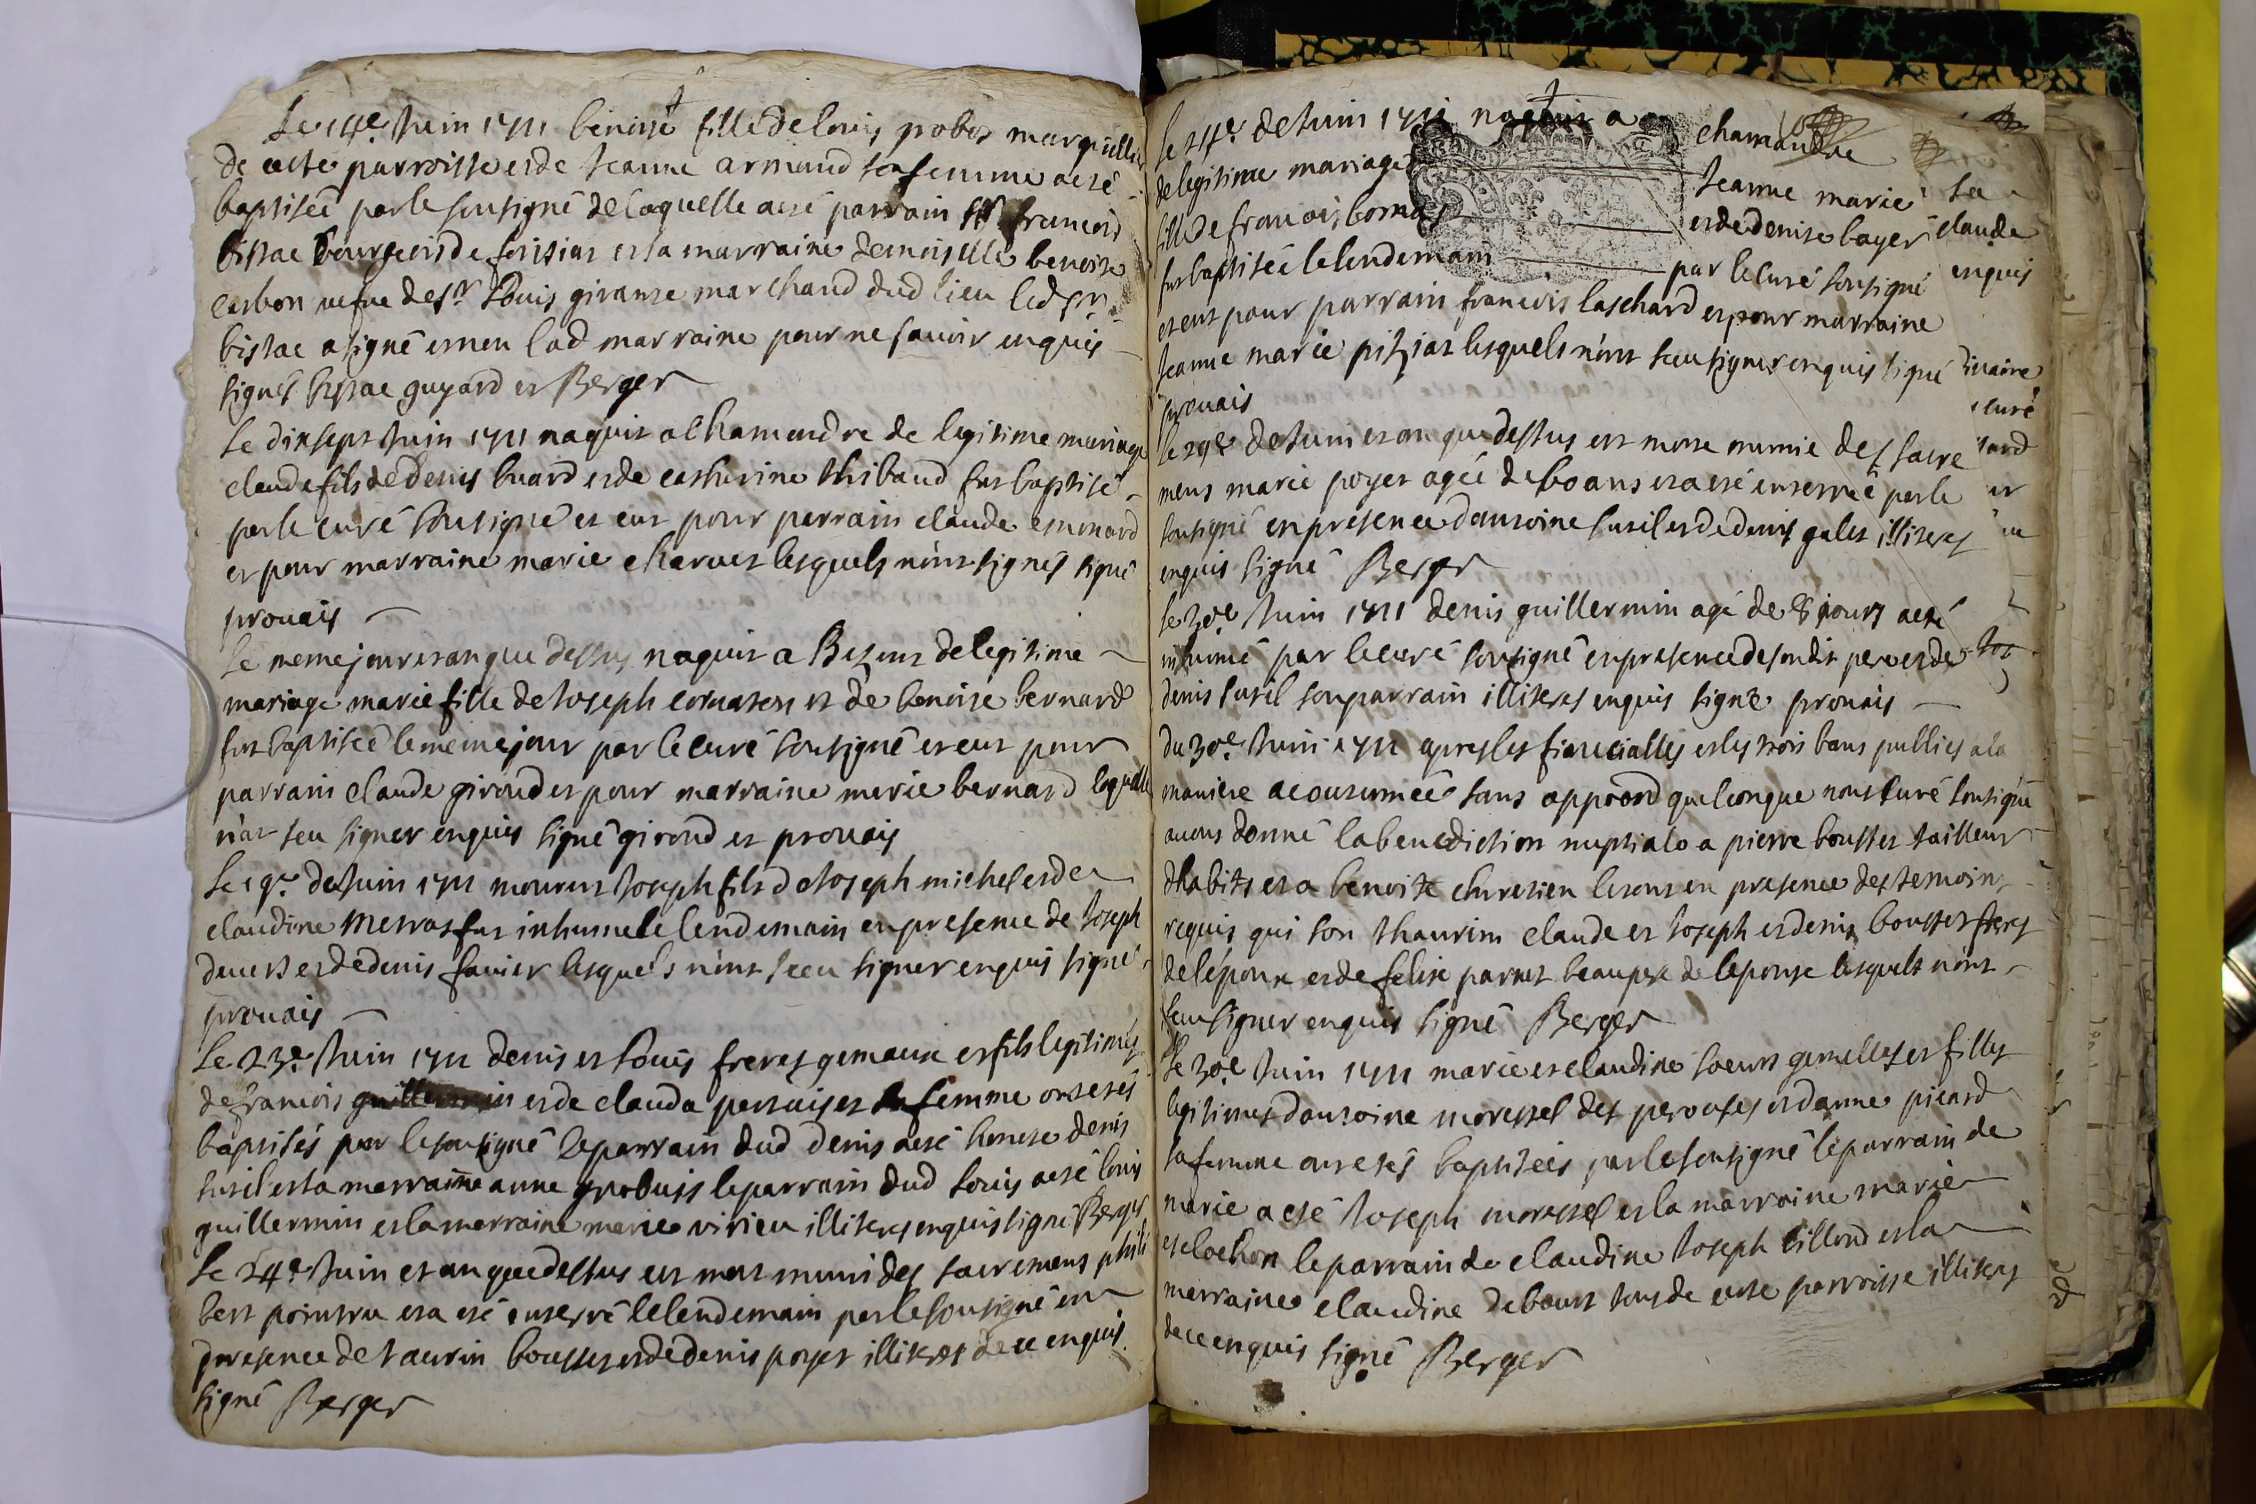 Le 14e Juin 1711 benoite fille de louis probos marguillier
de cette parroisse et de Jeanne armand sa femme a eté
baptiseé par le sousigné de laquelle a eté parrain Sr francois
bissac bourgeois de et la marraine demoiselle benoite
carbon vefve de sr Louis girause marchand dud lieu led sr
bissac a signé et non lad marraine pour ne savoir enquis
signés bissac guyard et Berger
Le dixsept Juin 1711 naquit a Chamandre de legitime mariage
claude fils de Denis buard et de catherine thibaud fut baptisé
par le curé sousigné et eut pour parrain claude emonard
et pour marraine marie charvet lesquels n'ont signés signé
provais
Le meme jour et an que dessus naquit a de legitime
mariage marie fille de Joseph et de benoite bernard
fut baptiseé le meme jour par le curé sousigné et eut pour
parrain claude giroud et pour marraine marie bernard laquelle
n'at seu signer enquis signé giroud et provais
Le 19e de Juin 1711 mourut Joseph fils de Joseph michel et de
claudine merras fut inhumé le lendemain en presence de Joseph
et de denis favier lesquels n'ont sceu signer enquis signé
provais
Le 23e Juin 1711 denis et Louis freres gemaux et fils legitimes
de francois guillermin et de clauda sa femme ont etés
baptisés par le sousigné le parrain dud denis a eté honete denis
susil et la marraine anne probuis le parrain dud Louis a eté louis
guillermin et la marraine marie virieu illiteres enquis signé Berger
Le 24e Juin et an que dessus est mort muni des sacremens phili
bert pointru et a eté enterré le lendemain par le sousigné en
presence de taurin bousset et de denis poyet illiteres de ce enquis
signé Berger
le 24e de Juin 1711 naquit a chamandre
de legitime mariage Jeanne marie
fille de francois bornas et de denise bayer
fut baptiseé le lendemain par le curé sousigné
et eut pour parrain francois laschard et pour marraine
Jeanne marie pitiot lesquels n'ont seu signer enquis signé
provais
le 29e de Juin et an que dessus est morte munie des sacre
mens marie poyet ageé de 60 ans et a eté enterreé par le
sousigné en presence d'antoine susil et de denis galet illiteres
enquis signé Berger
le 30e Juin 1711 denis guillermin agé de 8 jours a eté
inhumé par le curé sousigné en presence de sondit pere et de
denis susil son parrain illiteres enquis signé provais
du 30e Juin 1711 apres les fiancialles et les trois bans publies a la
maniere acoutumeé sans appord quelconque nous Curé sousigné
avons donné la benediction nuptiale a pierre bousset tailleur
d'habits et a benoite chretien le tout en presence des temoins
requis qui son thaurin claude et Joseph et denis bousset freres
de l'époux et de felix parret beaupere de l'epouse lesquels n'ont
seu signer enquis signé Berger
Le 30e Juin 1711 marie et claudine soeurs gemelles et filles
legitimes d'antoine morestel des perouses et d'anne picard
sa femme ont etés baptiseés par le sousigné le parrain de
marie a eté Joseph morestel et la marraine marie
esclochon le parrain de claudine Joseph billond et la
marraine claudine debourt tous de cette parroisse illiteres
de ce enquis signé Berger